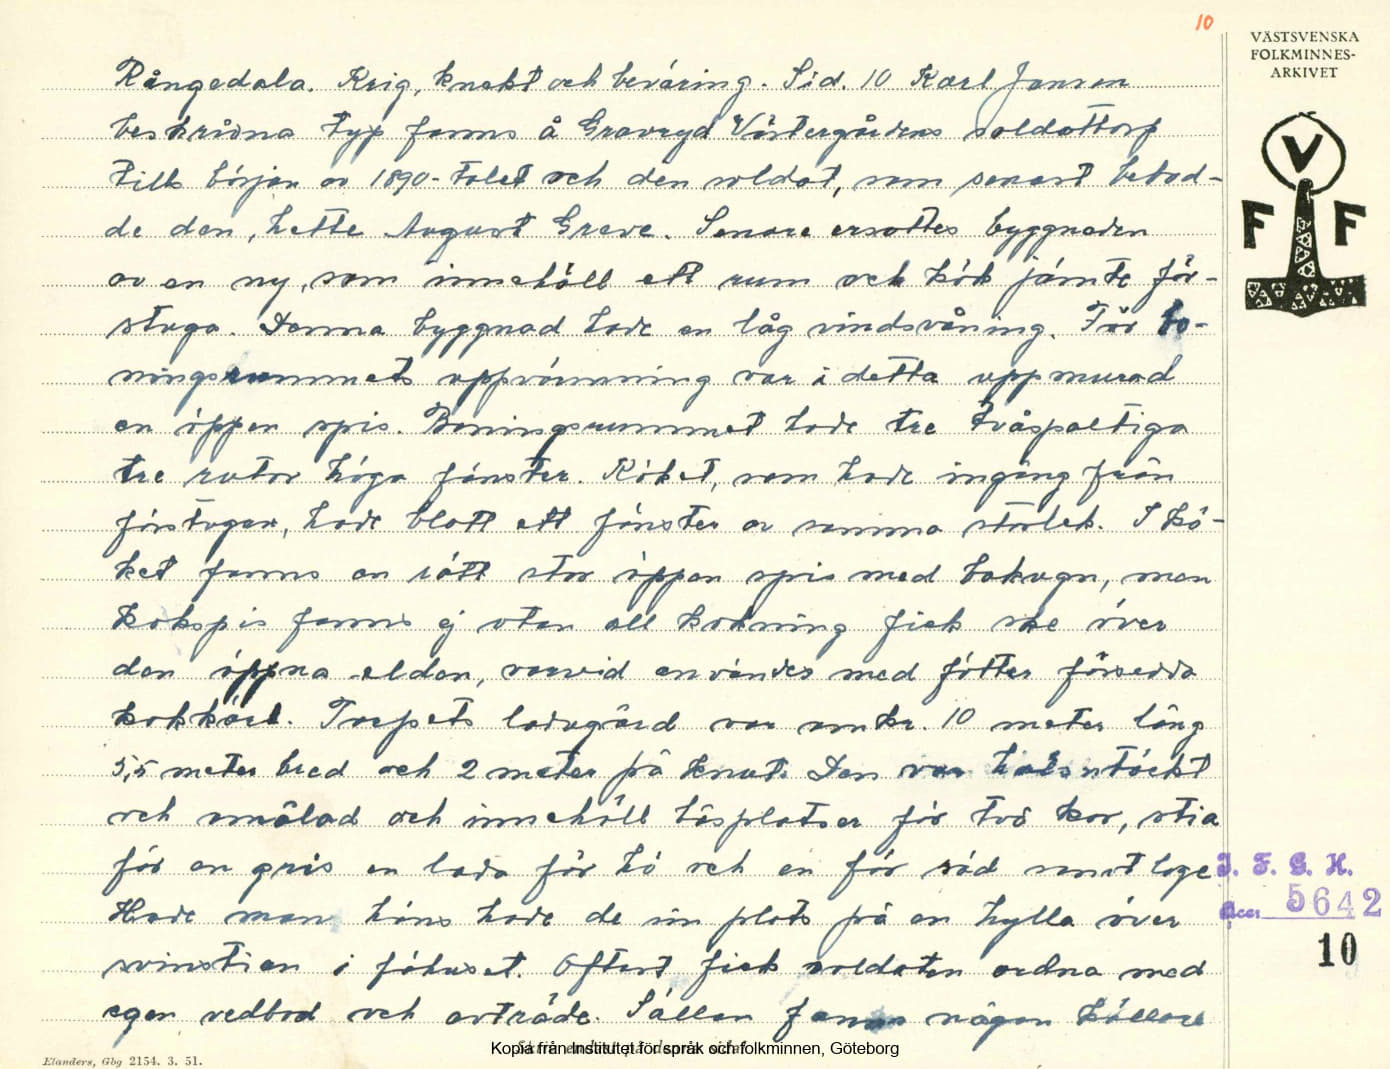 10
VÄSTSVENSKA
FOLKMINNES-
ARKIVET
Rångedala. Krig, knekt och beväring. Sid. 10 Karl Janson
beskrivna typ fanns å Gravryd Västergårdens soldattorp
tills början av 1890-talet och den soldat, som senast bebod-
de den, hette August Greve. Senare ersattes byggnaden
av en ny, som innehöll ett rum och kök jämte för-
stuga. Denna byggnad hade en låg vindsvåning. För bo-
ningsrummets uppvärmning var i detta uppmurad
en öppen spis. Boningsrummet hade tre tvåspaltiga
tre rutor höga fönster. Köket, som hade ingång från
förstugan, hade blott ett fönster av samma storlek. I kö-
ket fanns en rätt stor öppen spis med bakugn, men
kokspis fanns ej utan all kokning fick ske över
den öppna elden, varvid användes med fötter försedda
kokkärl. Torpets ladugård var omkr. 10 meter lång
5,5 meter bred och 2 meter på knut. Den var halmtäckt
och omålad och innehöll båsplatser för två kor, stia
för en gris en lada för hö och en för säd samt loge
Hade man höns hade de sin plats på en hylla över
svinstian i fähuset. Oftast fick soldaten ordna med
egen vedbod och avträde. Sällan fanns någon källare
V
F F
I. F. G. H.
Acc. 5642
10
Elanders, Gbg 2154. 3. 51.
Kopia från Institutet för språk och folkminnen, Göteborg